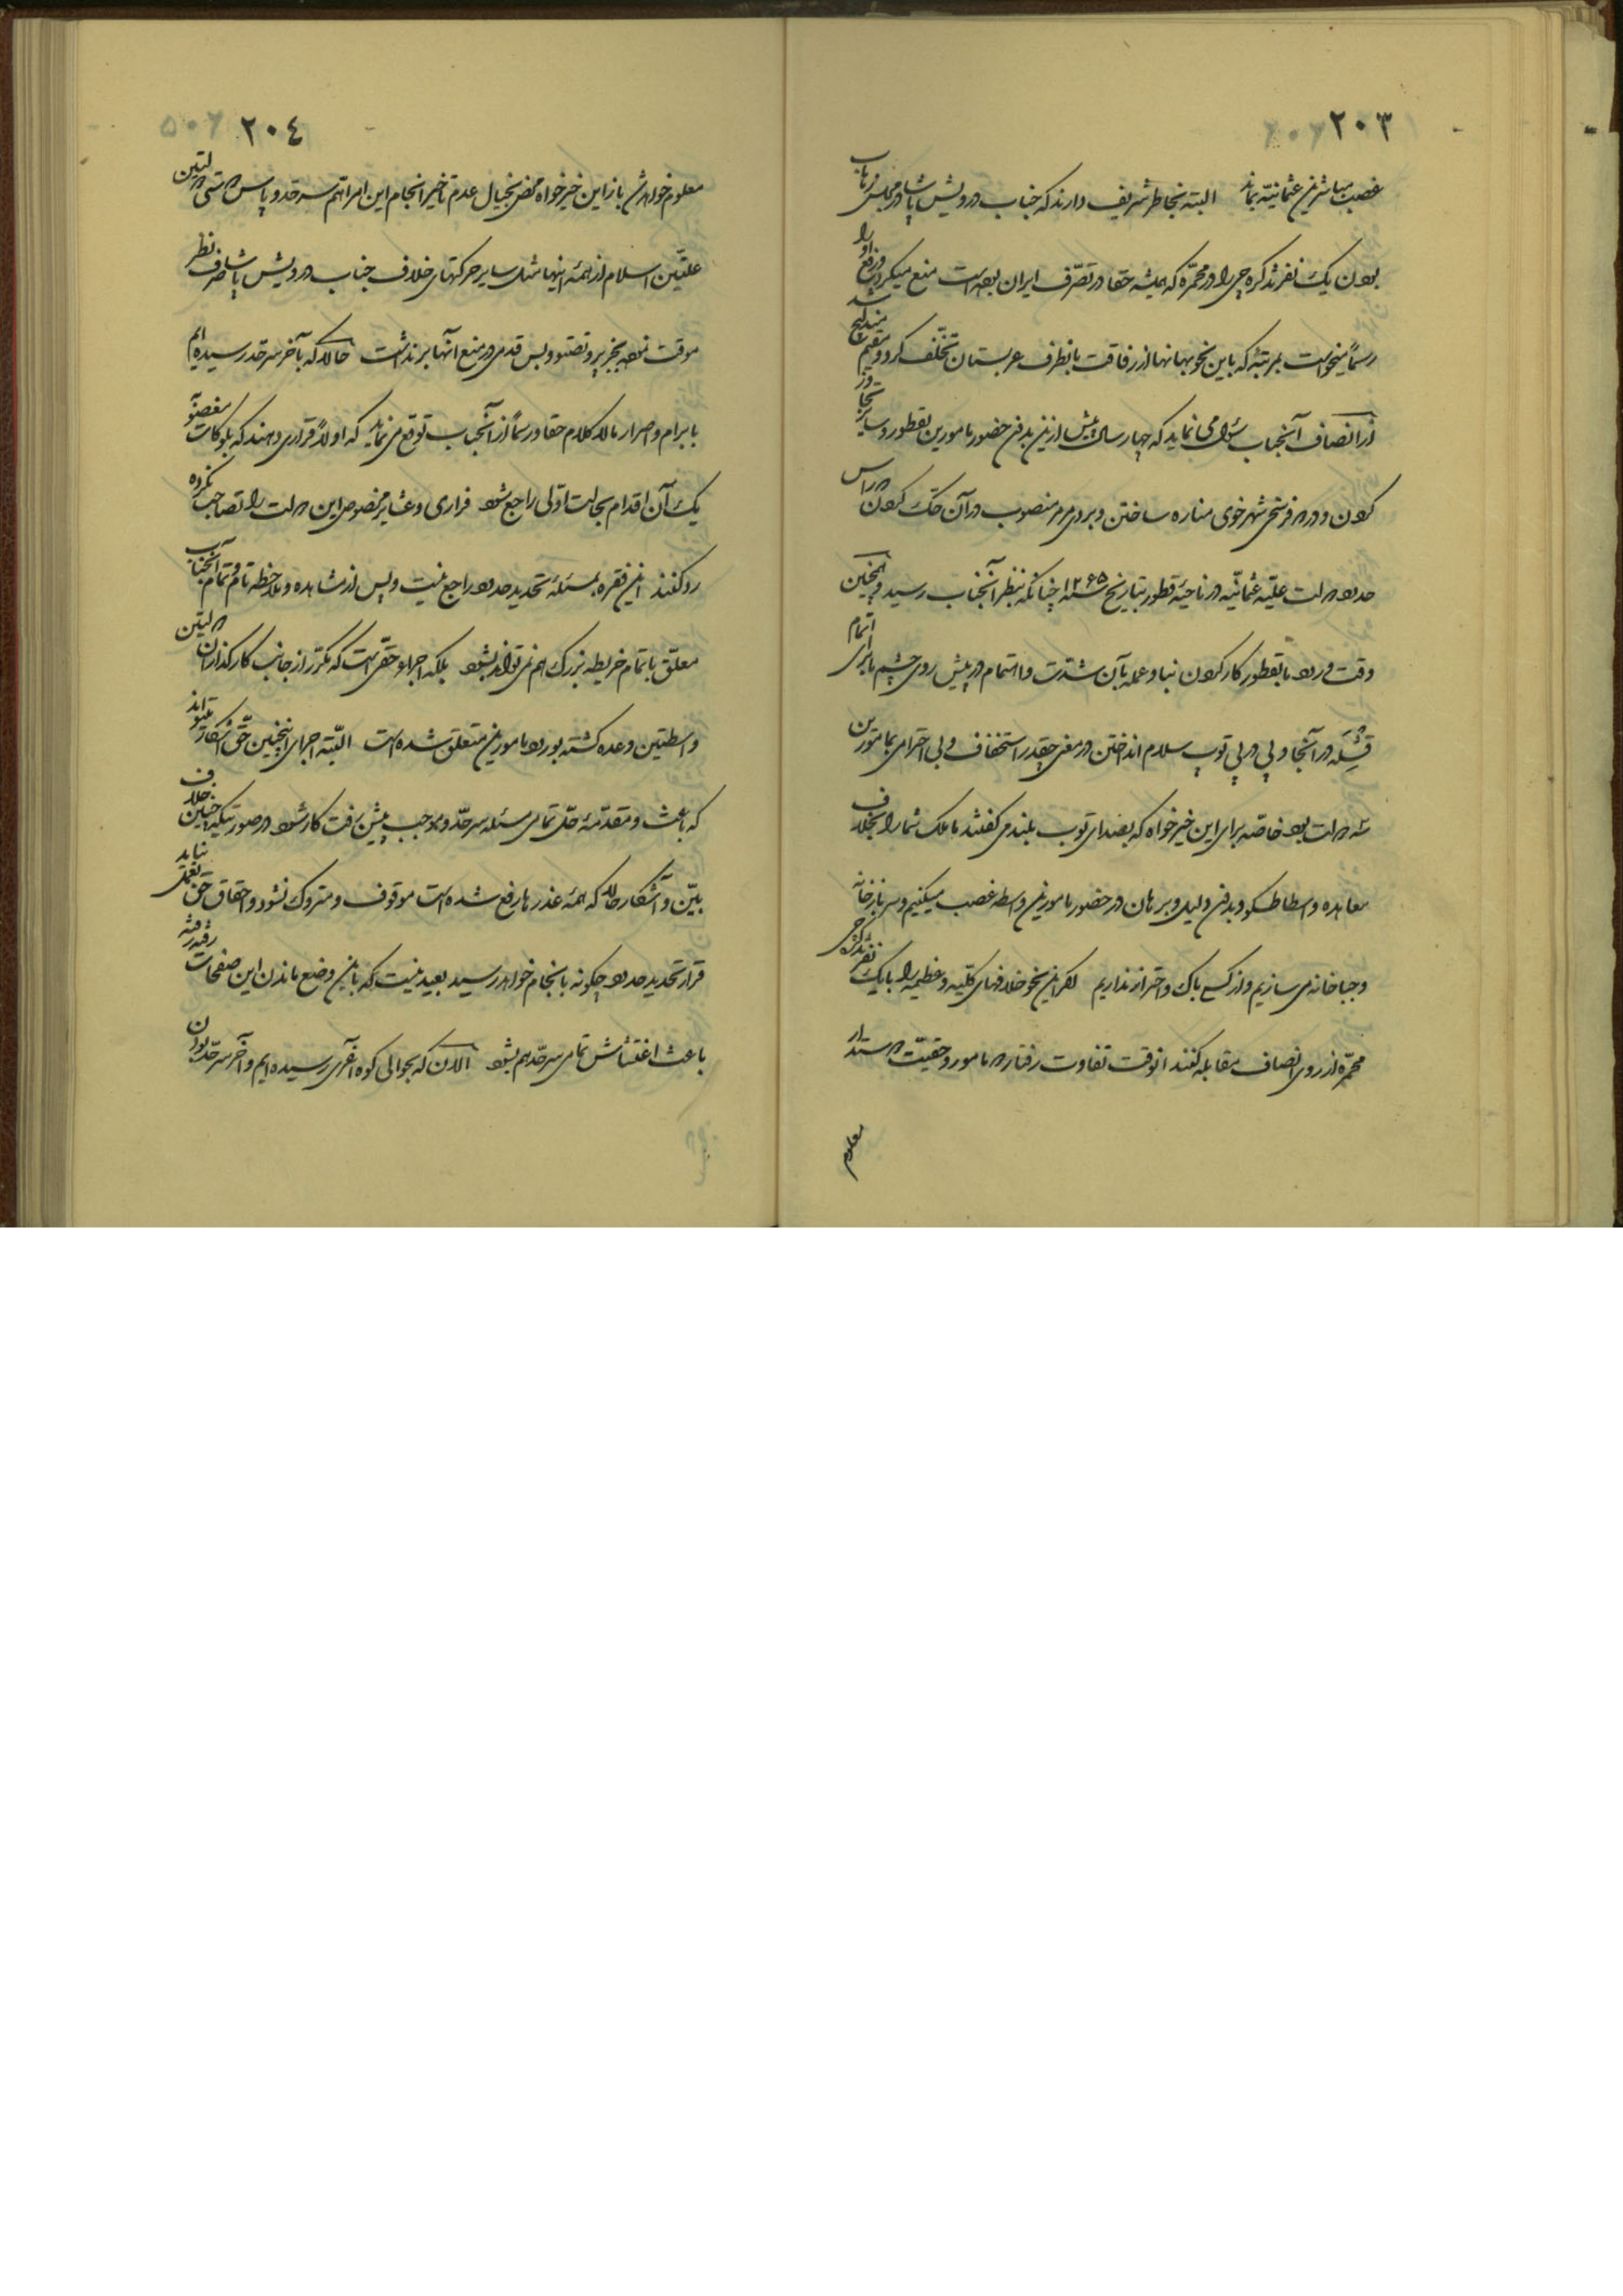 ٢٠٣
غصب مباشرین عثمانیّه بماند البته بخاطر شریف دارند که جناب درویش پاشا در مجلس زهاب
بودن یک نفر تذکره چی را در محمّره که همیشه حقا در تصرّف ایران بوده است منع میکرد و رفع او را
رسماً میخواست بمرتبهٔ که باین نحو بهانها از رفاقت بانطرف عربستان تخلّف کرد و مقیم مندلیج شد
از انصاف آنجناب سئوال می نماید که چهار سال پیش ازین بدون حضور مامورین بقطور و سایر تجاوز
کردن و در دو فرسخی شهر خوی مناره ساختن و بر در مرمر منصوب در آن حکّ کردن در اس
حدود دولت علیّه عثمانیّه در ناحیهٔ قطور بتاریخ سنه ١٢٦٥ چنانکه بنظر آنجناب رسید و همچنین
وقت ورود ما بقطور کار کردن بنا و عمله بآن شدّت و اهتمام در پیش روی چشم ما برای اتمام
قشله در آنجا و پی در پی توپ سلام انداختن در معنی چقدر استخفاف و بی احترامی بمامورین
سه دولت بود خاصّه برای این خیرخواه که بصدای توپ بلند می گفتند ما ملک شما را بخلاف
معاهده و اسطاطسکو و بدون دلیل و برهان در حضور مامورین واسطه غصب میکنیم و سربازخانه
و جباخانه می سازیم و از کسی باک و احتراز نداریم اگر این نحو خلافهای کلّیه و عظیمه را با یک نفر تذکره چی
محمّره از روی انصاف مقابله کنند انوقت تفاوت رفتار دو مامور و حقیّت دوستدار
معلوم
٢٠٤
معلوم خواهد شد باز این خیرخواه محض بخیال عدم تاخیر انجام این امر اتهم سرحد و پاس دوستی دولتین
علیّتین اسلام از همهٔ اینها مثل سایر حرکتهای خلاف جناب درویش پاشا صرف نظر
موقت نموده بتحریر و تصتو و بس قدمی در منع آنها بر نداشت حالا که بآخر سرحد رسیده ایم
بابرام و اصرار مالا کلام حقا و رسماً از آنجناب توقع می نماید که اولاً قراری دهند که بلوکات مغصوبه
یک آن اقدام بحالت اوّلی راجع شود فراری و عشایر مخصوص این دولت را تصاحب نکرده
رد کنند این فقره بمسئلهٔ تحدید حدود راجع نیست و پس از مشاهده و ملاحظه تام و تمام آنجناب
معلّق باتمام خریطه بزرک هم نمی تواند بشود بلکه اجراء حقّی است که مکرّر از جانب کارگذاران دولتین
واسطتین وعده کشته بورود مامورین متعلق شده است البتّه اجرای اینچنین حقّ آشکار نمیتواند
که باعث و مقدّمهٔ حلّ تمامی مسئله سرحدّ و موجب پیش رفت کار شود در صورتیکه چنین خلاف
بیّن و آشکار حالا که همهٔ عذرها رفع شده است موقوف و متروک نشود و احقاق حقّ بعمل نیاید
قرار تحدید حدود چکونه بانجام خواهد رسید بعید نیست که باین وضع ماندن این صفحات رفته رفته
باعث اغتشاش تمامی سرحدّ هم بشود الان که بحوالی کوه آغری رسیده ایم و آخر سرحدّ بودن